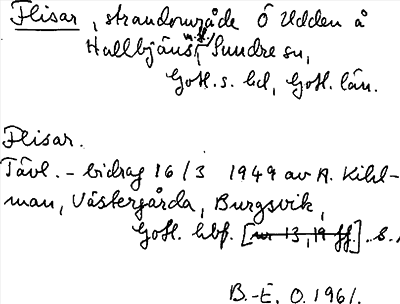 Flisar, strandområde Ö Udden å
Hallbjäns n.ff./ Sundre sn,
Gotl. s. hd, Gotl. län.
Flisar.
Tävl.-bidrag 16/3 1949 av A. Kihl-
man, Västergårda, Burgsvik,
Gotl. hbf. [nr 13, 19 ff.] s.,
B.-E. O. 1961.